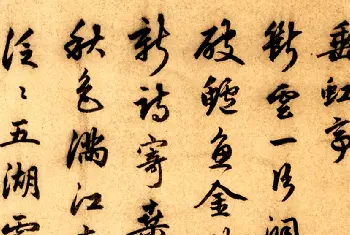 垂虹亭
斷雲一片洞
破鱸魚金
新詩寄桑
秋色滿江
泛〻五湖霜